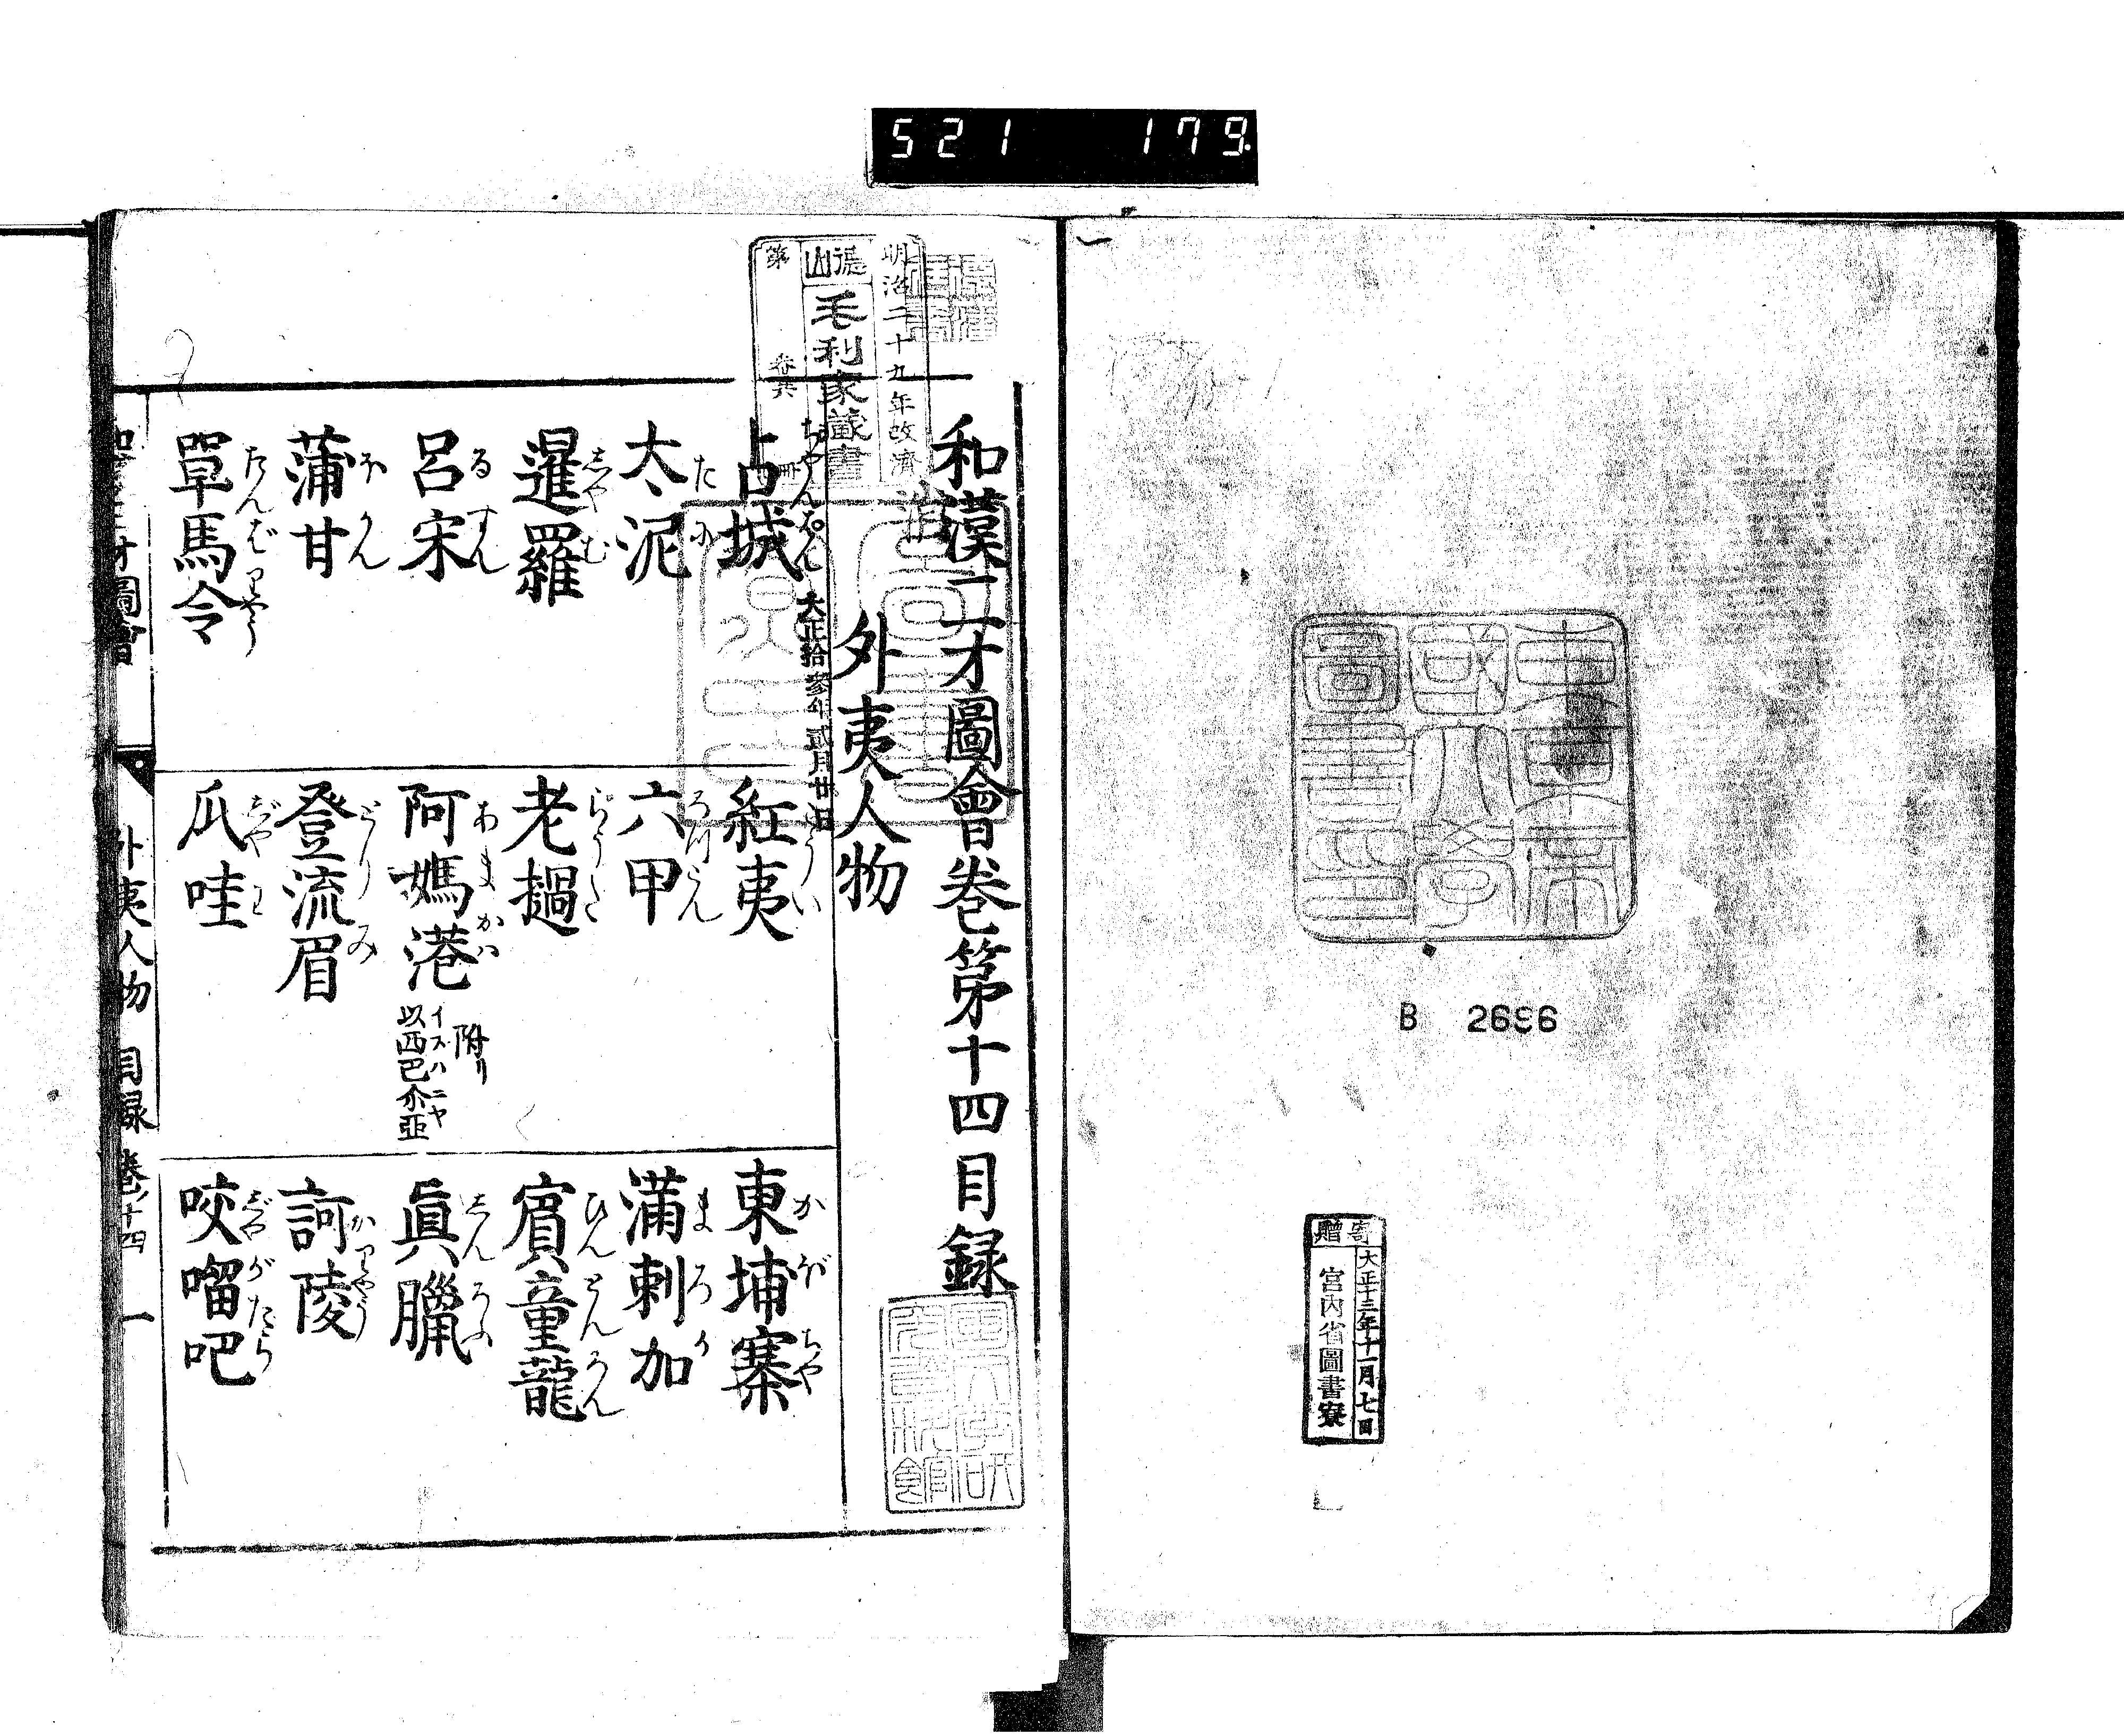 521 179.
東京帝
國大學
圖書印
B 2696
寄贈
大正十三年十一月七日
宮内省圖書寮
明治二十九年改濟
德山
毛利家藏書
第
卷共
冊
和漢三才圖會卷第十四目録
外夷人物
大正拾參年貳月廿
占城
太泥
たに
暹羅
しやむ
呂宋
るすん
蒲甘
ほかん
單馬令
たんばりやう
紅夷
六甲
ろつこん
老撾
らうくわ
阿媽港
あまかは
附リ
以西巴尓亞
イスハニヤ
登流眉
とりみ
瓜哇
じやわ
東埔寨
かぼちや
滿剌加
まろか
賓童龍
ひんとんろん
眞臘
しんろう
訶陵
かりやう
咬𠺕吧
じやがたら
外夷人物 目録 卷ノ十四 一